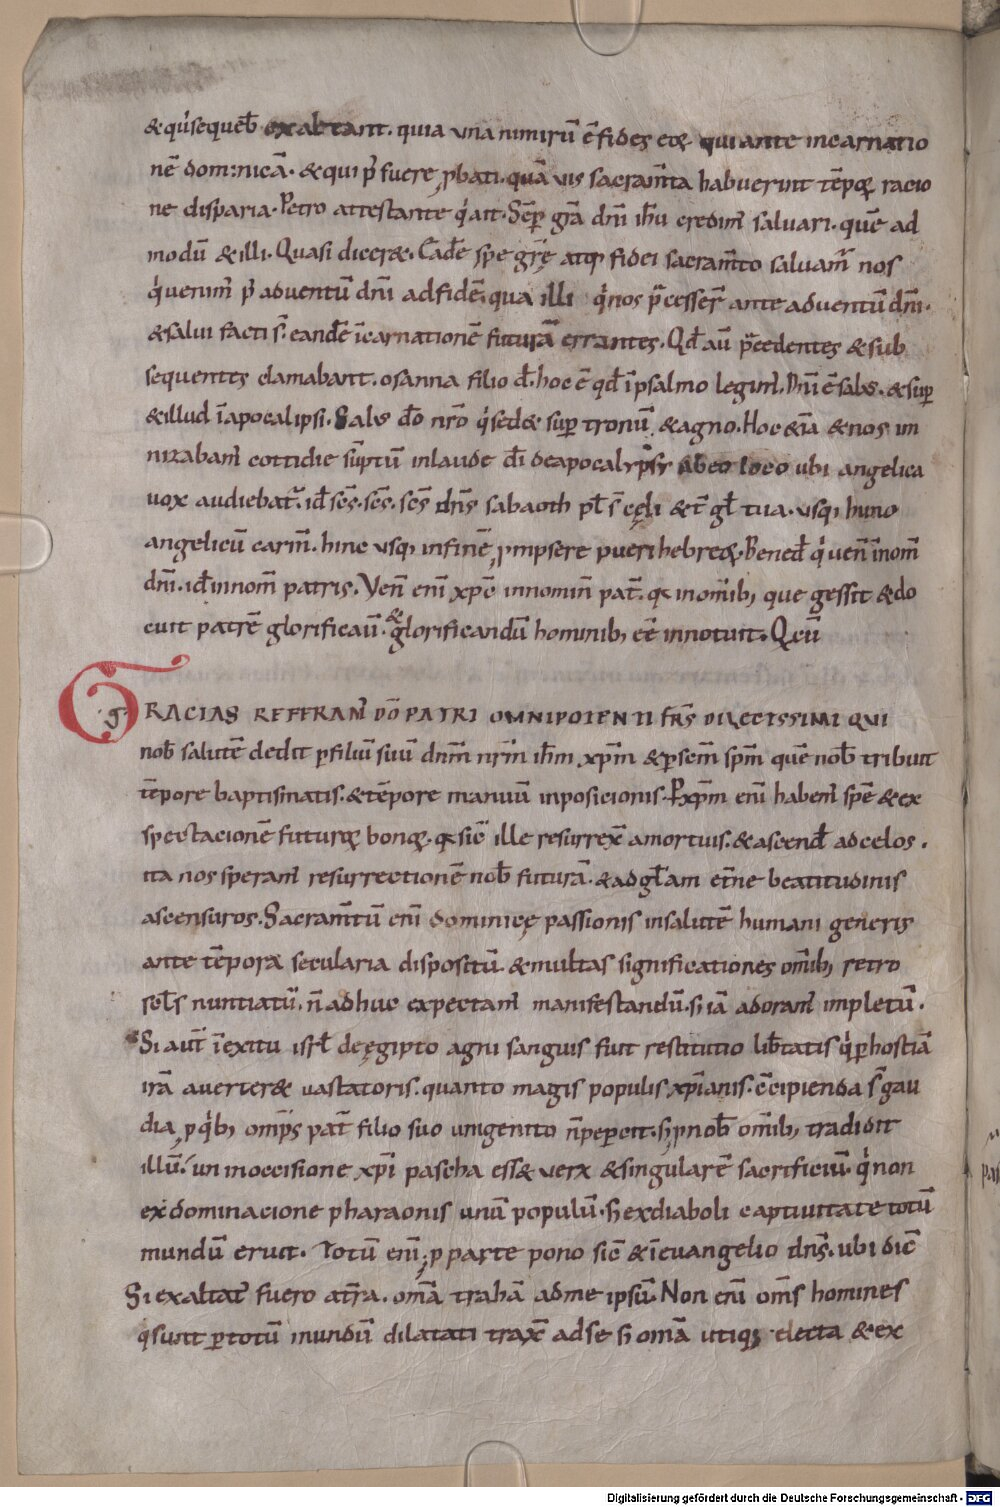 & qui sequeb̄ exaltant. quia una nimirū ē fides eoꝝ qui ante incarnatio
nē dominicā. & qui p̄ fuere ꝓbati. quā vis sacram̄ta habuerint tēpoꝝ racio
ne disparia. Petro attestante q̇ ait. Sēꝑ gr̄a dn̄i ih̄u credim̄ saluari. quē ad
modū & illi. Quasi dicer&. Eadē spe gr̄e atq; fidei sacram̄to saluam̄ nos
q̇ uenim̄ p̄ aduentū dn̄i ad fidē. qua illi q̇ nos p̄cesser̄ ante aduentū dn̄i.
& salui facti s̄. eandē īcarnationē futurā errantes. Qd̄ aū p̄cedentes & sub
sequentes clamabant. osanna filio d̄. hoc ē qd̄ ī psalmo legim̄. Dn̄i ē salus. & suꝑ
& illud ī apocalipsi. Salus d̄o nr̄o q̇ sed& suꝑ tronū & agno. Hoc &iā & nos im
nizabam̄ cottidie sūptū in laude d̄i de apocalypsi ab eo loco ubi angelica
uox audiebat̄. id sc̄s. sc̄s. sc̄s dn̄s sabaoth pl̄ s̄ cęli & t̄ gl̄ tua. usq; hunc
angelicū carm̄. hinc usq; in finē ꝓmpsere pueri hebreoꝝ. Bened̄ q̇ uen̄ ī nom̄
dn̄i. id in nom̄ patris. Ven̄ eni xp̄c in nomin̄ pat̄. q̇ in omīb; que gessit & do
cuit patrē glorificauit̄. & glorificandū hominib; eē innotuit. Q cū
GRACIAS REFERAM̄ DŌ PATRI OMNIPOTENTI FR̄S DILECTISSIMI QUI
nob̄ salutē dedit ꝑ filiū suū dnm̄ nrm̄ ih̄m xp̄m & ꝑ sc̄m sp̄m quē nob̄ tribuit
tēpore baptismatis. & tēpore manuū inposicionis. P xp̄m eni habem̄ spē & ex
spectacionē futuroꝝ bonoꝝ. q̇ sic̄ ille resurrex̄ a mortuis. & ascend̄ ad celos.
ita nos speram̄ resurrectionē nob̄ futurā. & ad gl̄am et̄ne beatitudinis
ascensuros. Sacram̄tū eni dominicę passionis in salutē humani generis
ante tēpora secularia dispositū. & multas significationes om̄ib; retro
sc̄ls nuntiatū. n̄ adhuc expectam̄ manifestandū. s; iā adoram̄ impletū.
Si aut̄ ī exitu isrl̄ de ęgipto agni sanguis fuit restitutio lib̄tatis q̇ ꝑ hostiā
irā auerter& uastatoris. quanto magis populis xp̄ianis. c̄cipienda s̄ gau
dia, ꝓ q̇b; omp̄s pat̄ filio suo unigenito n̄ peꝑcit. s; ꝓ nob̄ om̄ib; tradidit
illū. un in occisione xp̄i pascha ess& uerx & singularē sacrificiū. q̇ non
ex dominacione pharaonis unū populū. s; ex diaboli captiuitate totū
mundū eruit. Totū eni ꝓ parte pono sic̄ & ī euangelio dn̄s. ubi dic̄
Si exaltat̄ fuero at̄ra. om̄a trahā ad me ipsū. Non eni om̄s homines
q̇ sunt ꝑ totū mundū dilatati trax̄ ad se s; om̄a utiq; electa & ex